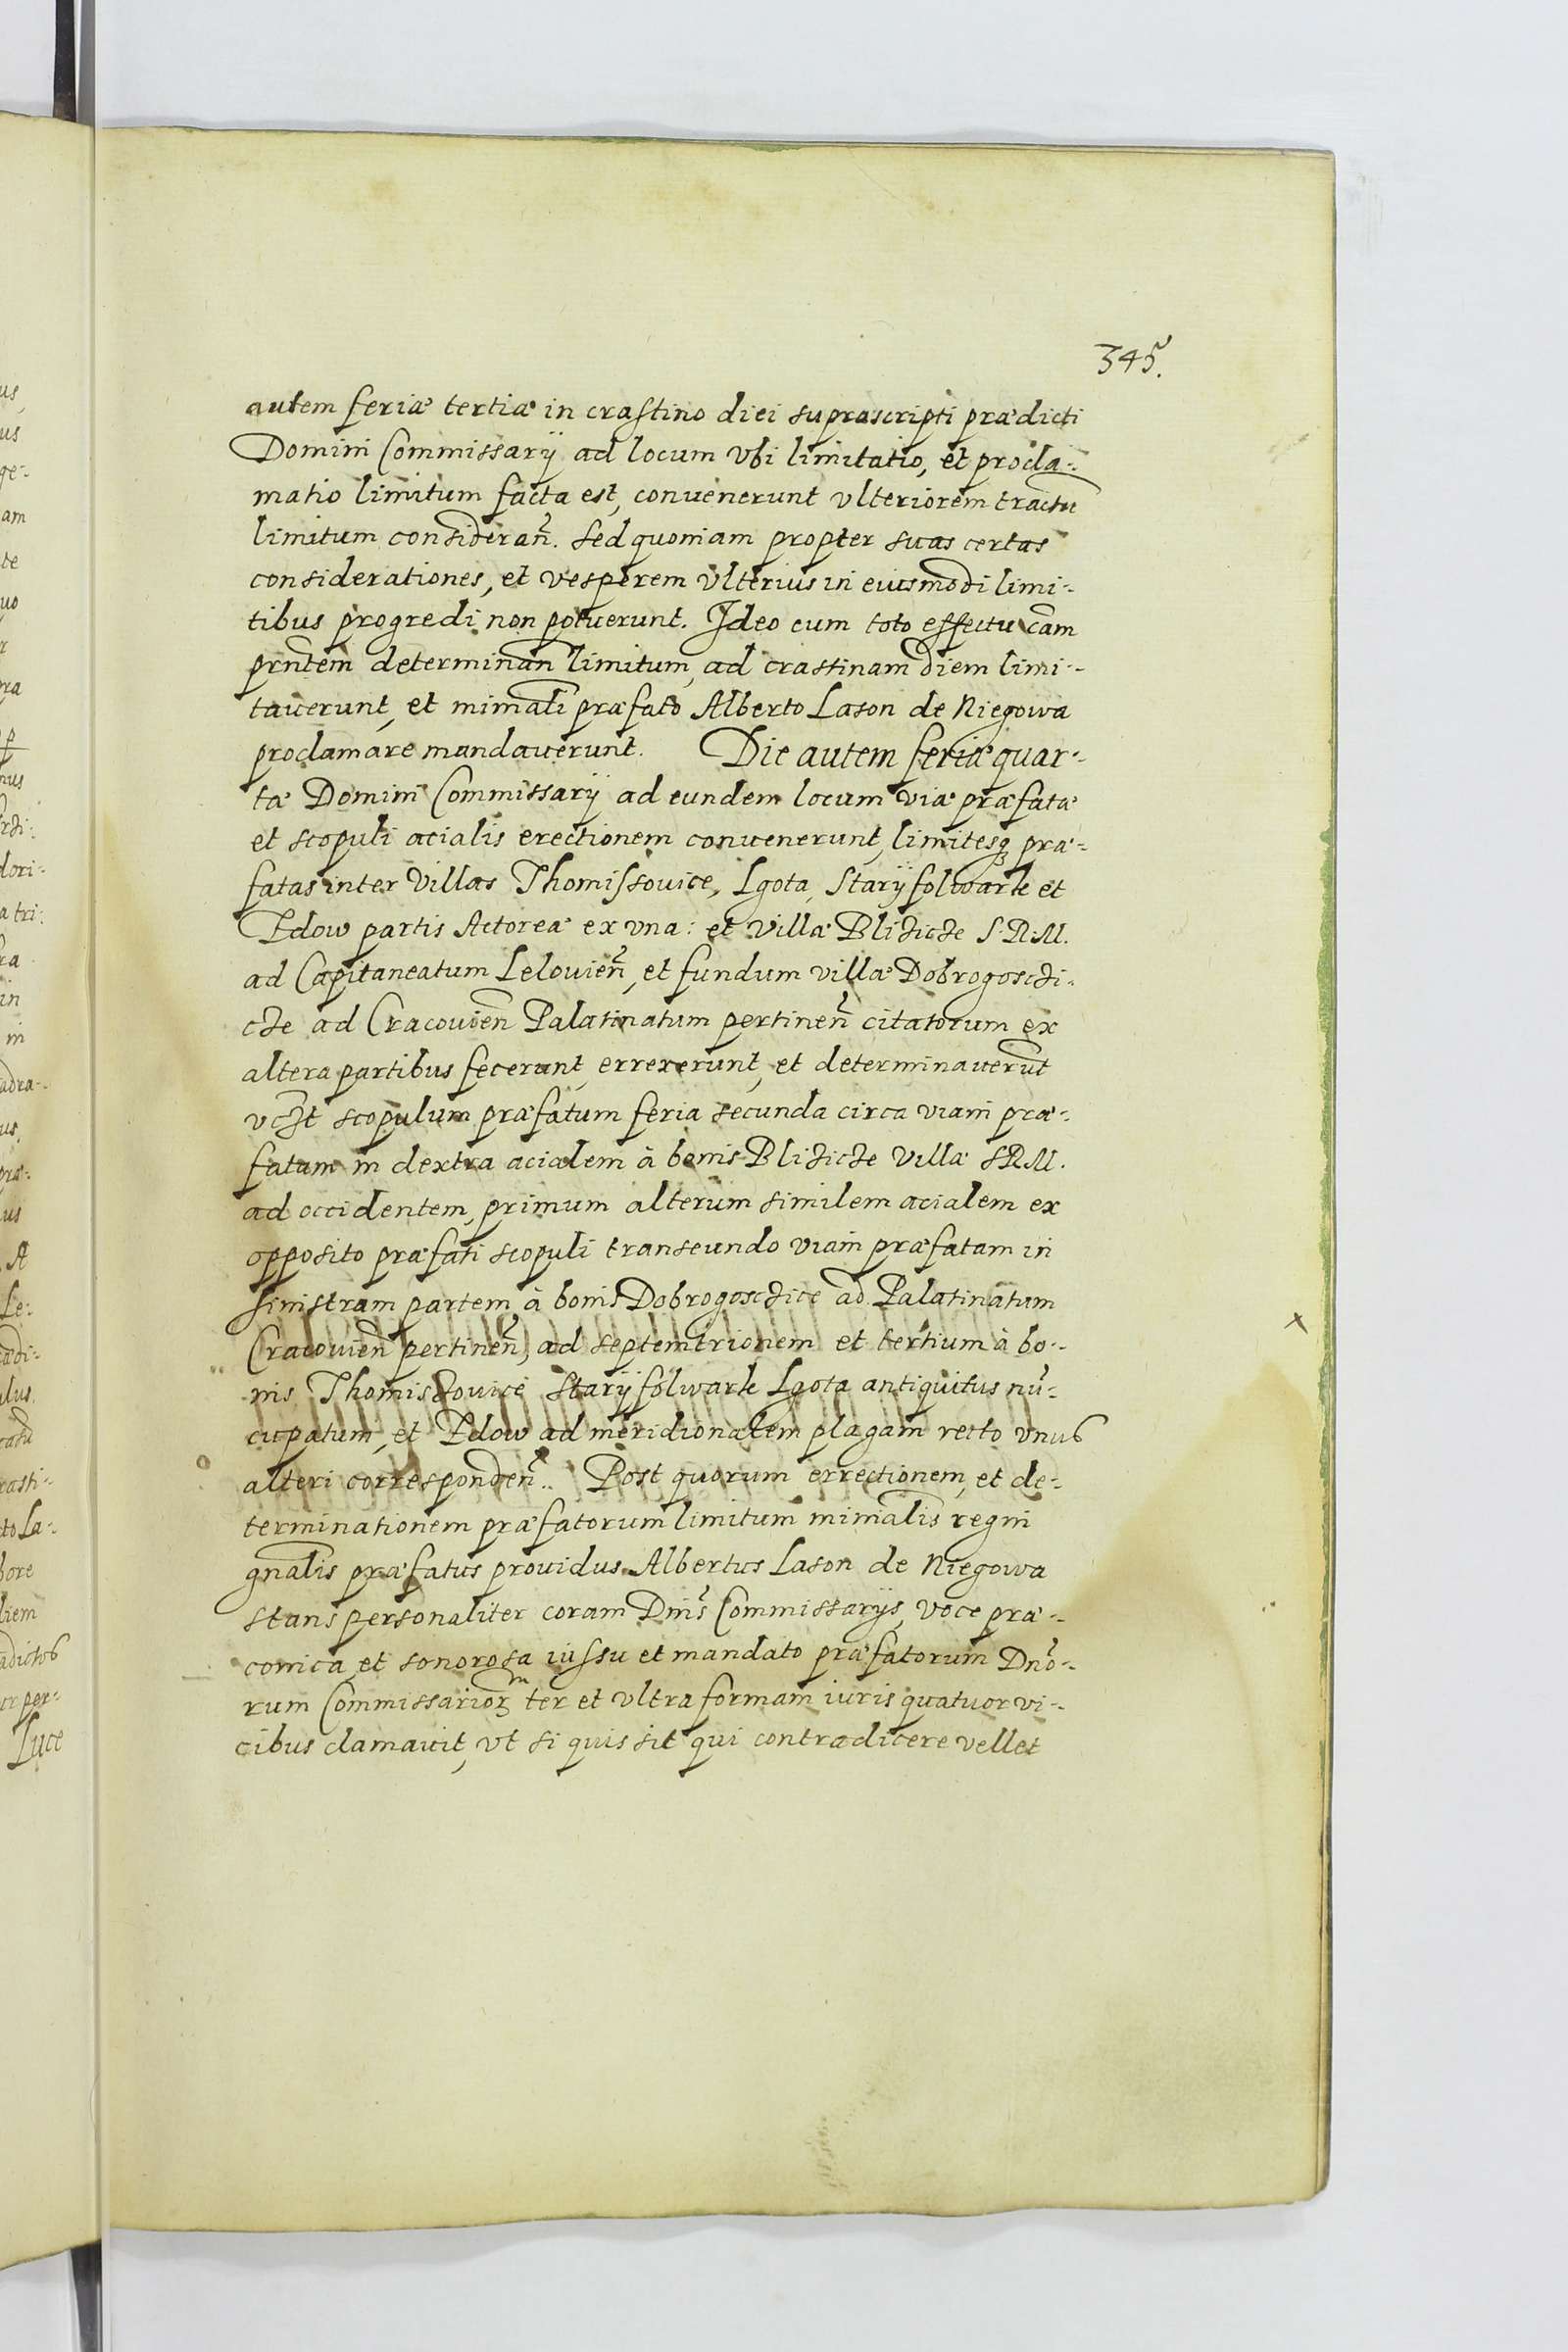 345.
autem feriæ tertiæ in crastino diei suprascripti prædicti
Domini Commissarÿ ad locum vbi limitatio, et procla-
matio limitum facta est, conuenerunt vlteriorem tractū
limitum considerañ. Sed quoniam propter suas certas
considerationes, et vesperem vlterius in eiusmodi limi-
tibus progredi non potuerunt. Ideo cum toto effectu cām
prntem determinan̄ limitum, ad crastinam diem limi-
tauerunt, et minīali præfato Alberto Lason de Niegowa
proclamare mandauerunt. Die autem feriæ quar-
tæ Domini Commissarÿ ad eundem locum viæ præfatæ
et scopuli acialis erectionem conuenerunt, limitesq præ-
fatas inter villas Thomissouice, Lgota, Starÿ folwark et
Zdow partis Actoreæ ex vna: et villæ Blizicze S.R.M.
ad Capitaneatum Lelouien̄, et fundum villæ Dobrogoszczi-
cze ad Cracouien̄ Palatinatum pertinen̄ citatorum ex
altera partibus fecerunt, errexerunt, et determinauerūt
vczt scopulum præfatum feria secunda circa viam præ-
fatam in dextra acialem à bonis Blizicze villæ SRM.
ad occidentem, primum alterum similem acialem ex
opposito præfati scopuli transeundo viam præfatam in
sinistram partem à bonis Dobrogosczice ad Palatinatum
Cracouien̄ pertinen̄, ad septemtrionem et tertium à bo-
nis Thomiszouice Starÿ folwark Lgota antiquitus nū-
cupatum, et Zdow ad meridionalem plagam recto vnus
alteri corresponden̄.. Post quorum errectionem, et de-
terminationem præfatorum limitum minīalis regni
gnālis præfatus prouidus Albertus Lason de Niegowa
stans personaliter coram Dnīs Commissarÿs, voce præ-
conica et sonorosa iussu et mandato præfatorum Dnō-
rum Commissarioꝝ ter et vltra formam iuris quatuor vi-
cibus clamauit, vt si quis sit qui contradicere vellet